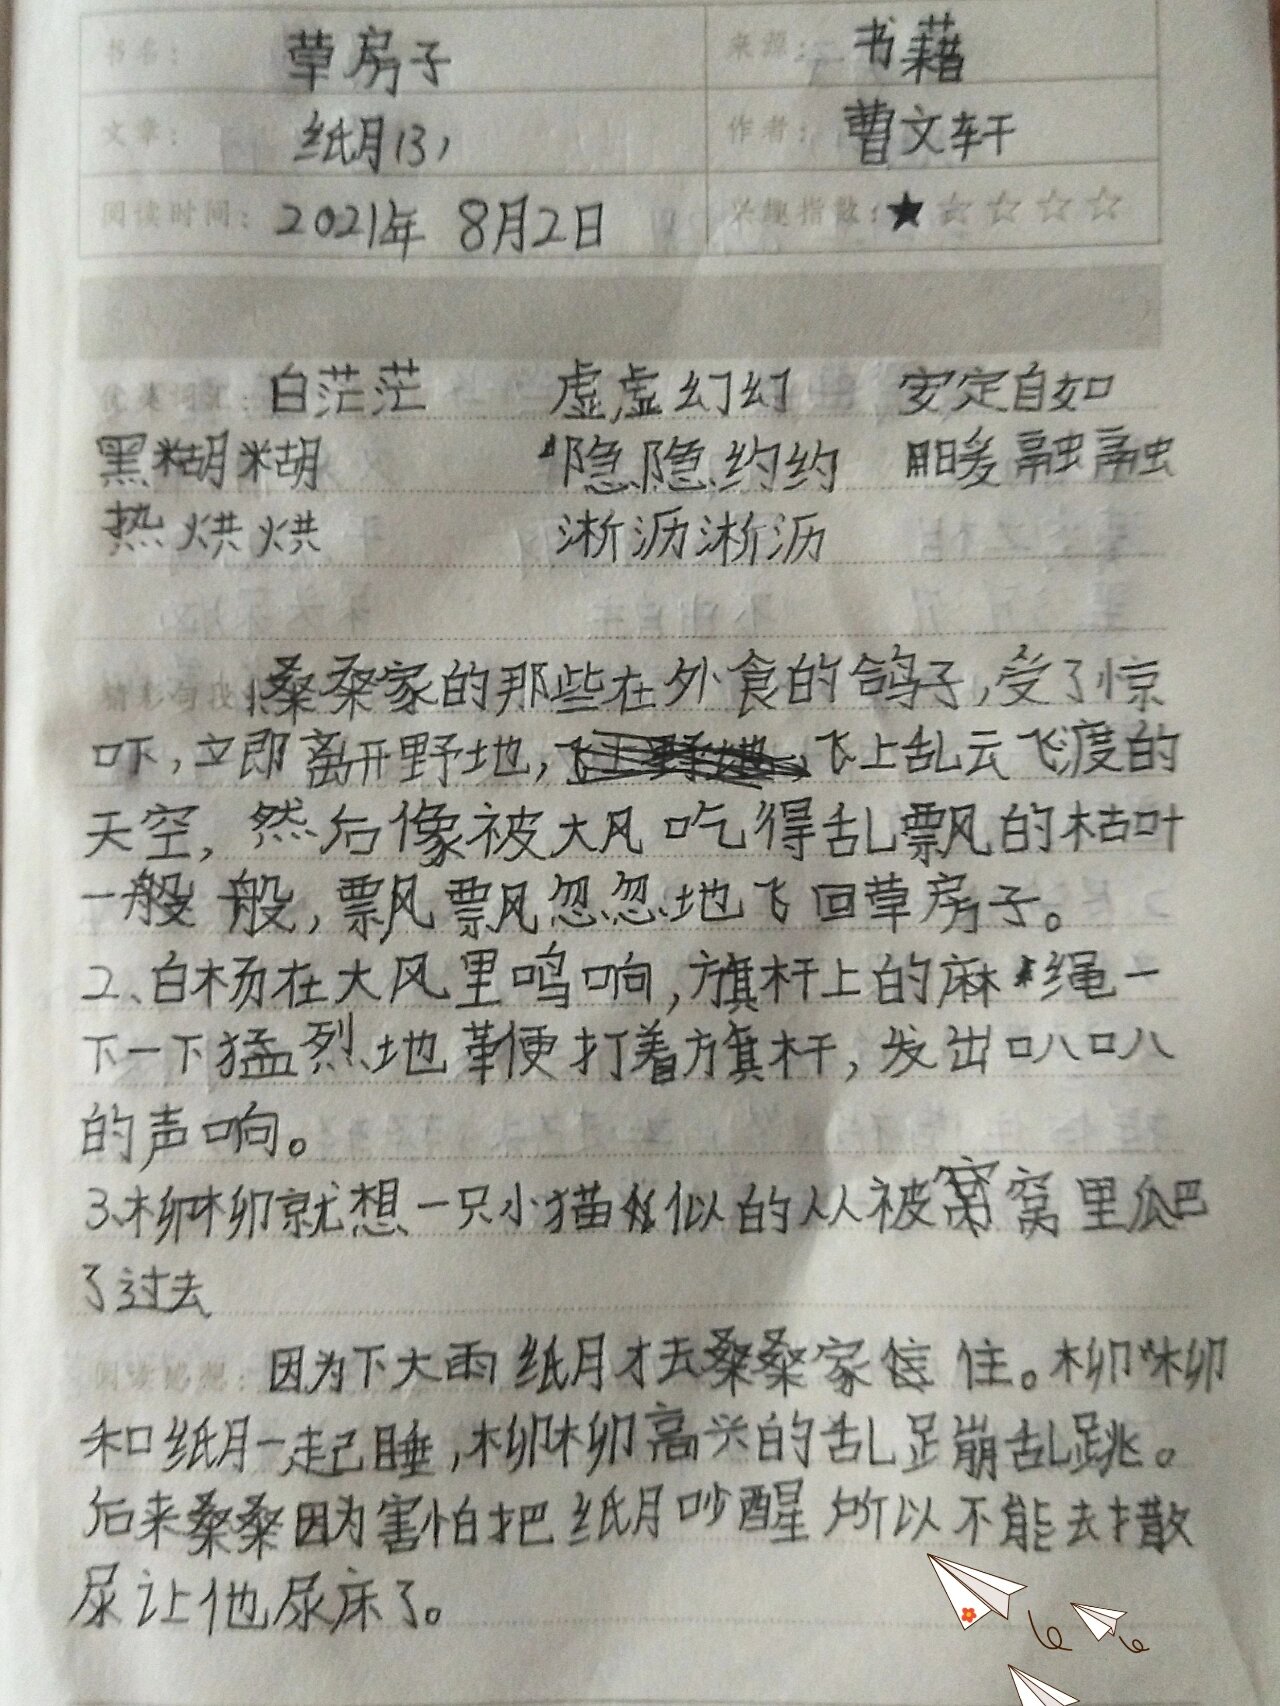 书名： 草房子 来源： 书籍
文章： 纸月(3) 作者： 曹文轩
阅读时间： 2021年 8月2日 兴趣指数：★☆☆☆☆
优美词汇： 白茫茫 虚虚幻幻 安定自如
黑糊糊 隐隐约约 暖融融
热烘烘 淅沥淅沥
精彩句段： 1桑桑家的那些在外食的鸽子,受了惊
吓,立即离开野地,飞上乱云飞渡的
天空,然后像被大风吃得乱飘的枯叶
一般般,飘飘忽忽地飞回草房子。
2、白杨在大风里鸣响,旗杆上的麻绳一
下一下猛烈地鞭打着旗杆,发出叭叭
的声响。
3、柳柳就想一只小猫似的从被窝里爬
了过去
阅读感想： 因为下大雨纸月才去桑桑家住。柳柳
和纸月一起睡,柳柳高兴的乱蹦乱跳。
后来桑桑因为害怕把纸月吵醒所以不能去撒
尿让他尿床了。